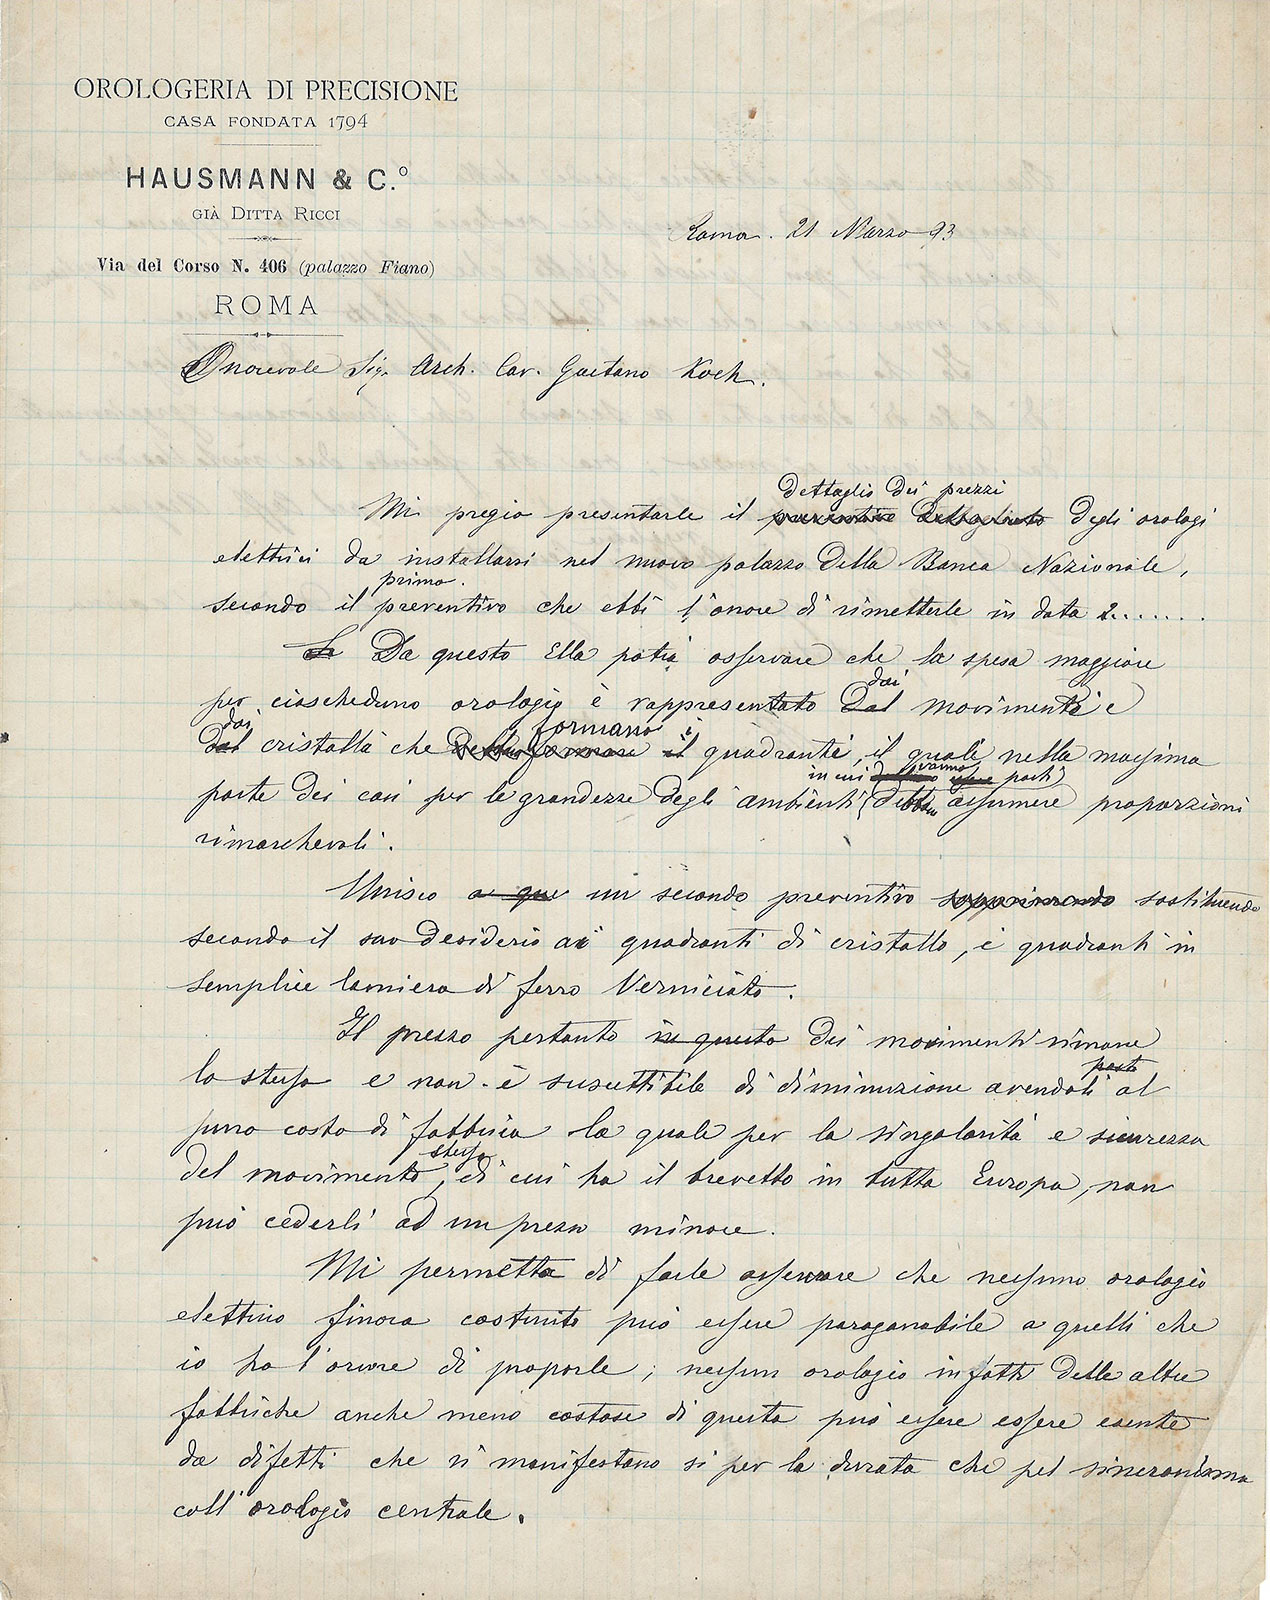 OROLOGERIA DI PRECISIONE
CASA FONDATA 1794
HAUSMANN & C.º
GIÀ DITTA RICCI
Via del Corso N. 406 (palazzo Fiano)
ROMA
Roma. 21 Marzo 93
Onorevole Sig. Arch. Cav. Gaetano Koch.
dettaglio dei prezzi
Mi pregio presentarle il preventivo dettagliato degli orologi
elettrici da installarsi nel nuovo palazzo della Banca Nazionale,
primo.
secondo il preventivo che ebbi l'onore di rimetterle in data 2.......
Da questo Ella potrà osservare che la spesa maggiore
dai
per ciascheduno orologio è rappresentato dal movimenti e
dai formano i
dal cristalli che il quadranti, il quali nella massima
in cui vanno posti
parte dei casi per le grandezze degli ambienti assumere proporzioni
rimarchevoli.
Unisco a que un secondo preventivo sopprimendo sostituendo
secondo il suo desiderio ai quadranti di cristallo, i quadranti in
semplice lamiera di ferro verniciato.
Il prezzo pertanto in questo dei movimenti rimane
posti
lo stesso e non è suscettibile di diminuzione avendoli al
puro costo di fabbrica la quale per la singolarità e sicurezza
stesso
del movimento, di cui ha il brevetto in tutta Europa, non
può cederli ad un prezzo minore.
Mi permetta di farle osservare che nessuno orologio
elettrico finora costruito può essere paragonabile a quelli che
io ho l'onore di proporle; nessun orologio infatti delle altre
fabbriche anche meno costose di questa può essere essere esente
da difetti che si manifestano si per la durata che pel sincronismo
coll'orologio centrale.